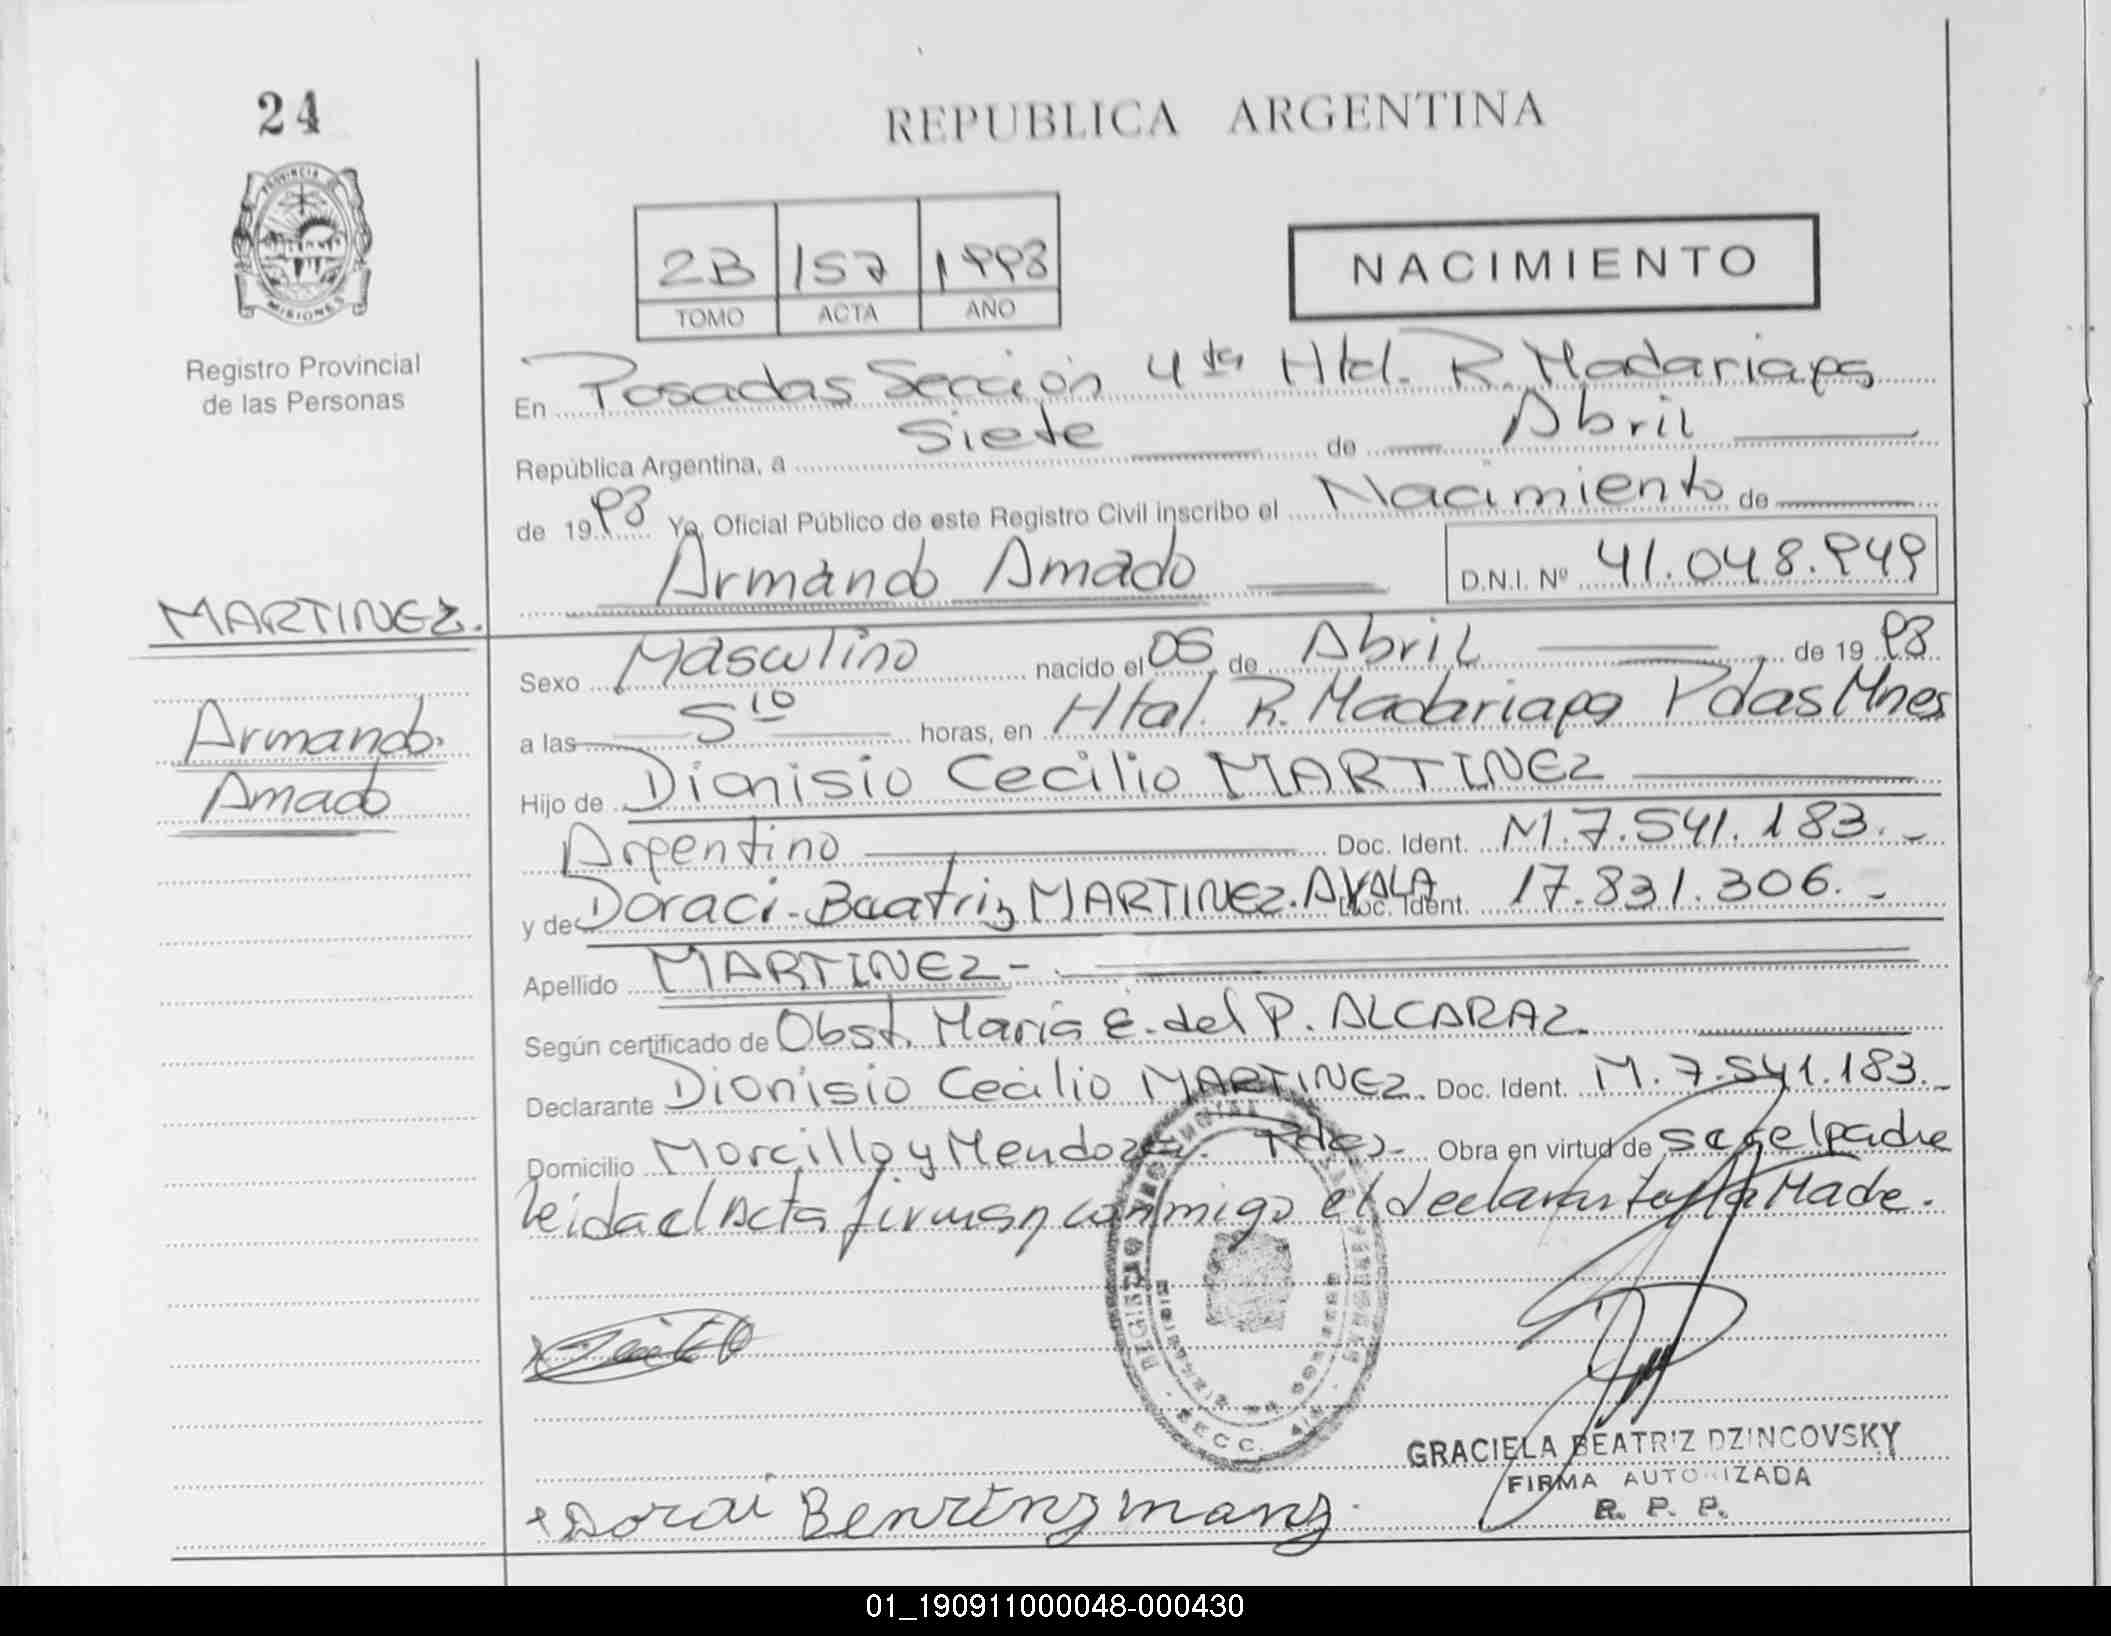 24
REPUBLICA ARGENTINA
PROVINCIA DE
MISIONES
Registro Provincial
de las Personas
2B 157 1998
TOMO ACTA AÑO
NACIMIENTO
En Posadas Sección 4ta Htal. R. Madariaga
República Argentina, a Siete de Abril
de 1998 Yo, Oficial Público de este Registro Civil inscribo el Nacimiento de
Armando Amado D.N.I. Nº 41.048.949
MARTINEZ.
Armando
Amado
Sexo Masculino nacido el 05 de Abril de 1998
a las 5 10 horas, en Htal. R. Madariaga Pdas Mnes
Hijo de Dionisio Cecilio MARTINEZ
Argentino Doc. Ident. M.7.541.183.-
y de Doraci-Beatriz MARTINEZ.AYALA Doc. Ident. 17.831.306.-
Apellido MARTINEZ-
Según certificado de Obst. Maria E. del P. ALCARAZ.
Declarante Dionisio Cecilio MARTINEZ. Doc. Ident. M.7.541.183.-
Domicilio Morcillo y Mendoza. Pdas- Obra en virtud de ser el padre
leida el Acta firman conmigo el declarante y la Madre.
SECC.
GRACIELA BEATRIZ DZINCOVSKY
FIRMA AUTORIZADA
R. P. P.
01_190911000048-000430